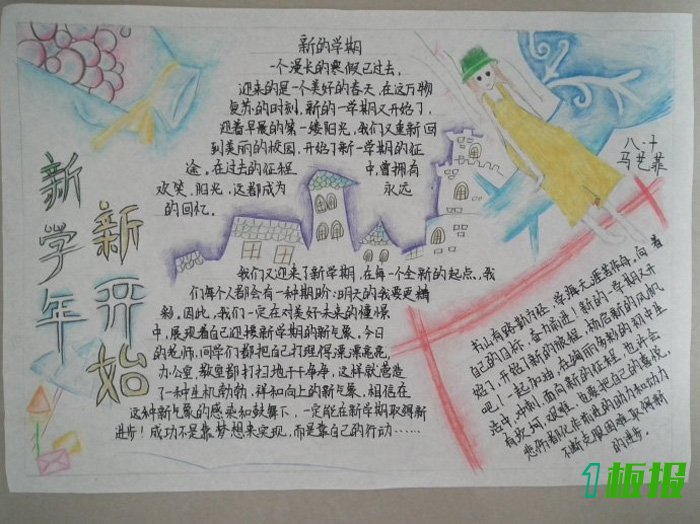 新的学期
一个漫长的寒假已过去,
迎来的是一个美好的春天,在这万物
复苏的时刻,新的一学期又开始了,
迎着早晨的第一缕阳光,我们又重新回
到美丽的校园,开始了新一学期的征
途,在过去的征程中,曾拥有
欢笑、阳光,这都成为永远
的回忆。
八.十
马艺菲
新学年
新开始
我们又迎来了新学期,在每一个全新的起点,我
们每个人都会有一种期盼:明天的我要更精
彩。因此,我们一定在对美好未来的憧憬
中,展现着自己迎接新学期的新气象,今日
的老师、同学们都把自己打理得漂漂亮亮,
办公室、教室都打扫地干干净净,这样就营造
了一种生机勃勃、祥和向上的新气象,相信在
这种新气象的感染和鼓舞下,一定能在新学期取得新
进步!成功不是靠梦想来实现,而是靠自己的行动……
书山有路勤为径,学海无涯苦作舟,向着
自己的目标,奋力前进!新的一学期又开
始了,开始了新的旅程,扬启新的风帆
吧!一起加油,在绚丽多彩的初中生
活中,冲刺,面向新的征程,也许会
有坎坷、艰难,只要把自己的喜悦、
悲伤都化作前进的动力和动力
不断克服困难取得新
的进步。
1板报